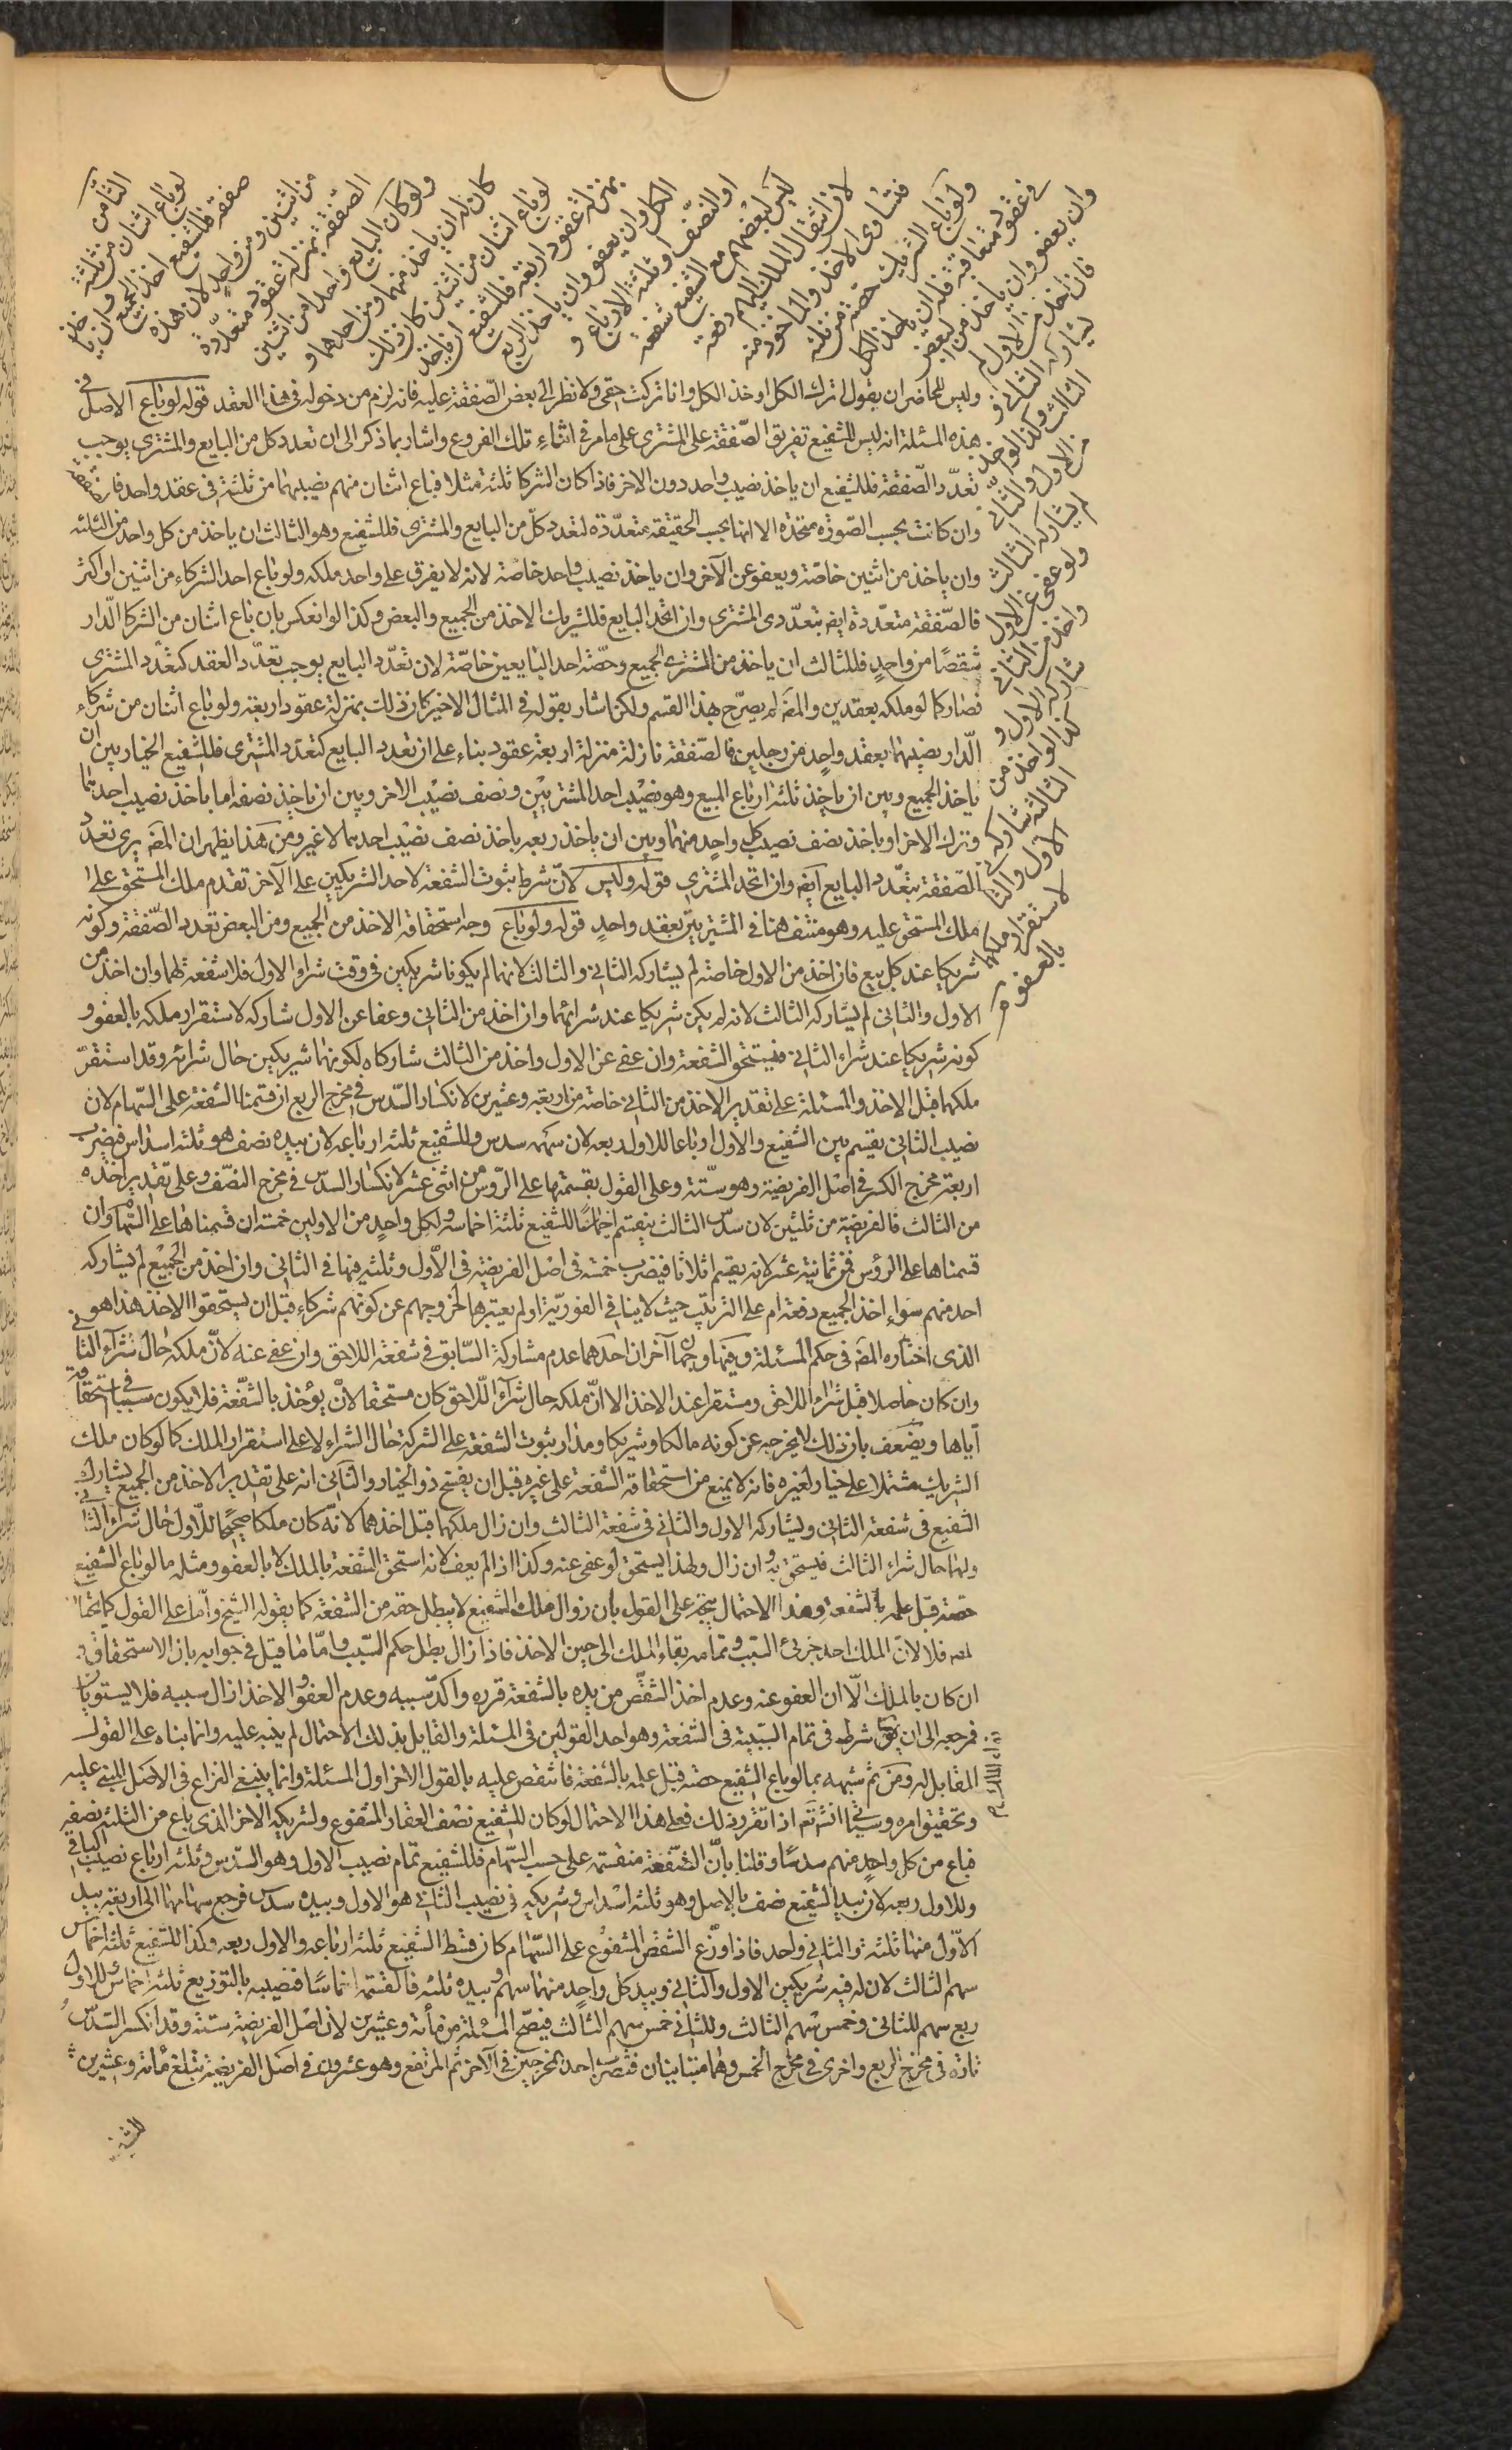 الثامن
لو باع اثنان من ثلثة
صفقة فللشفيع اخذ الجميع وان ياخذ
من اثنين ومن واحد لان هذه
الصفقة بمنزلة عقود متعددة
ولو كان البايع واحدا من اثنين
كان له ان ياخذ منهما ومن احدهما و
لو باع اثنان من اثنين كان ذلك
بمنزلة عقود اربعة فللشفيع ان ياخذ
الكل وان يعفو وان ياخذ الربع
او النصف او ثلثة الارباع و
ليس لبعضهم مع الشفيع شفعة
لانتقال الملك اليهم دفعة
فتساوى الاخذ والماخوذ منه
ولو باع الشريك حصته من ثلثة
فى عقود متعاقبة فله ان ياخذ الكل
وان يعفو وان ياخذ من البعض
فان اخذ من الاول لم
يشاركه الثانى و
الثالث وكذا لو اخذ
من الاول والثانى
لم يشاركه الثالث
ولو عفى عن الاول
واخذ من الثانى
شاركه الاول و
كذا لو اخذ من
الثالث شاركه
الاول والثانى
لاستقرار ملكهما
بالعفو
وليس للحاضر ان يقول اترك الكل او خذ الكل وانا تركت حقى ولا نظر الى بعض الصفقة عليه فانه لزم من دخوله فى هذا العقد قوله لو باع الاصل فى
هذه المسئلة انه ليس للشفيع تفريق الصفقة على المشترى على ما مر فى اثناء تلك الفروع واشار بما ذكر الى ان تعدد كل من البايع والمشترى يوجب
تعدد الصفقة فللشفيع ان ياخذ نصيب واحد دون الاخر فاذا كان الشركا ثلثة مثلا فباع اثنان منهم نصيبهما من ثلثة فى عقد واحد فان الصفقة
وان كانت بحسب الصورة متحدة الا انها بحسب الحقيقة متعددة لتعدد كل من البايع والمشترى فللشفيع وهو الثالث ان ياخذ من كل واحد من الثلثة
وان ياخذ من اثنين خاصة ويعفو عن الآخر وان ياخذ نصيب واحد خاصة لانه لا يفرق على واحد ملكه ولو باع احد الشركاء من اثنين او اكثر
فالصفقة متعددة ايضا بتعدد المشترى وان اتحد البايع فللشريك الاخذ من الجميع والبعض وكذا لو انعكس بان باع اثنان من الشركا الدار
شقصا من واحد فللثالث ان ياخذ من المشترى الجميع وحصة احد البايعين خاصة لان تعدد البايع يوجب تعدد العقد كتعدد المشترى
فصار كما لو ملكه بعقدين والمص لم يصرح بهذا القسم ولكن اشار بقوله فى المثال الاخير كان ذلك بمنزلة عقود اربعة ولو باع اثنان من شركاء
الدار نصيبهما بعقد واحد من رجلين فالصفقة نازلة منزلة اربعة عقود بناء على ان تعدد البايع كتعدد المشترى فللشفيع الخيار بين ان
ياخذ الجميع وبين ان ياخذ ثلثة ارباع المبيع وهو نصيب احد المشتريين ونصف نصيب الاخر وبين ان ياخذ نصفه اما ياخذ نصيب احدهما
وترك الاخر او ياخذ نصف نصيب كل واحد منهما وبين ان ياخذ ربعه ياخذ نصف نصيب احدهما لا غير ومن هذا يظهر ان المص يرى تعدد
الصفقة بتعدد البايع ايضا وان اتحد المشترى قوله وليس لان شرط ثبوت الشفعة لاحد الشريكين على الآخر تقدم ملك المستحق على
ملك المستحق عليه وهو منتف هنا فى المشتريين بعقد واحد قوله ولو باع وجه استحقاقه الاخذ من الجميع ومن البعض تعدد الصفقة وكونه
شريكا عند كل بيع فان اخذ من الاول خاصة لم يشاركه الثانى والثالث لانهما لم يكونا شريكين فى وقت شراء الاول فلا شفعة لهما وان اخذ من
الاول والثانى لم يشاركه الثالث لانه لم يكن شريكا عند شرائهما وان اخذ من الثانى وعفا عن الاول شاركه لاستقرار ملكه بالعفو و
كونه شريكا عند شراء الثانى فيستحق الشفعة وان عفى عن الاول واخذ من الثالث شاركاه لكونهما شريكين حال شرائه وقد استقر
ملكهما قبل الاخذ والمسئلة على تقدير الاخذ من الثانى خاصة من اربعة وعشرين لانكسار السدس فى مخرج الربع ان قسمنا الشفعة على السهام لان
نصيب الثانى يقسم بين الشفيع والاول ارباعا للاول ربعه لان سهمه سدس وللشفيع ثلثة ارباعه لان بيده نصف هو ثلثة اسداس فيضرب
اربعة مخرج الكسر فى اصل الفريضة وهو ستة وعلى القول بقسمتها على الروس من اثنى عشر لانكسار السدس فى مخرج النصف وعلى تقدير اخذه
من الثالث فالفريضة من ثلثين لان سدس الثالث ينقسم اخماسا للشفيع ثلثة اخماسه ولكل واحد من الاولين خمسه ان قسمناها على السهام وان
قسمناها على الرؤس فمن ثمانية عشر لانه يقسم اثلاثا فيضرب خمسة فى اصل الفريضة فى الاول وثلثة فيها فى الثانى وان اخذ من الجميع لم يشاركه
احد منهم سواء اخذ الجميع دفعة ام على الترتيب حيث لا ينافى الفورية او لم يعتبرها لخروجهم عن كونهم شركاء قبل ان يستحقوا الاخذ هذا هو
الذى اختاره المص فى حكم المسئلة وفيها وجهان آخران احدهما عدم مشاركة السابق فى شفعة اللاحق وان عفى عنه لان ملكه حال شراء الثانى
وان كان حاصلا قبل شراء اللاحق ومستقرا عند الاخذ الا ان ملكه حال شراء اللاحق كان مستحقا لان يؤخذ بالشفعة فلا يكون سببا فى استحقاقه
اياها ويضعف بان ذلك لا يخرجه عن كونه مالكا وشريكا ومدار ثبوت الشفعة على الشركة حال الشراء لا على استقرار الملك كما لو كان ملك
الشريك مشتملا على خيار لغيره فانه لا يمنع من استحقاقه الشفعة على غيره قبل ان يفسخ ذو الخيار والثانى انه على تقدير الاخذ من الجميع يشارك
الشفيع فى شفعة الثانى ويشاركه الاول والثانى فى شفعة الثالث وان زال ملكهما قبل اخذهما لانه كان ملكا صحيحا للاول حال شراء الثانى
ولهما حال شراء الثالث فيستحق به وان زال ولهذا يستحق لو عفى عنه وكذا اذا لم يعف لانه استحق الشفعة بالملك لا بالعفو ومثله ما لو باع الشفيع
حصته قبل علمه بالشفعة وهذا الاحتمال يتجه على القول بان زوال ملك الشفيع لا يبطل حقه من الشفعة كما يقوله الشيخ واما على القول كما يختار
المص فلا لان الملك احد جزئى السبب وتمامه بقاء الملك الى حين الاخذ فاذا زال بطل حكم السبب واما ما قيل فى جوابه بان الاستحقاق و
ان كان بالملك الا ان العفو عنه وعدم اخذ الشقص من يده بالشفعة قرره واكد سببه وعدم العفو والاخذ ازال سببه فلا يستويان
فمرجعه الى ان بقاء شرط فى تمام السببية فى الشفعة وهو احد القولين فى المسئلة والقايل بذلك الاحتمال لم ينبه عليه وانما بناه على القول
المقابل له ومن ثم شبهه بما لو باع الشفيع حصته قبل علمه بالشفعة فانتقص عليه بالقول الاخر اول المسئلة وانما ينبغى النزاع فى الاصل المبنى عليه
وتحقيق امره وسيأتى انش تع اذا تقرر ذلك فعلى هذا الاحتمال لو كان للشفيع نصف العقار المشفوع ولشريكه الاخر الذى باع من الثلثة نصفه
فباع من كل واحد منهم سدسا وقلنا بان الشفعة منقسمة على حسب السهام فللشفيع تمام نصيب الاول وهو السدس وثلثة ارباع نصيب الثانى
وللاول ربعه لان بيد الشفيع نصف بالاصل وهو ثلثة اسداس وشريكه فى نصيب الثانى هو الاول وبيده سدس فرجع سهامهما الى اربعة بيد
الاول منها ثلثة والثانى واحد فاذا وزع الشقص المشفوع على السهام كان قسط الشفيع ثلثة ارباعه والاول ربعه وكذا للشفيع ثلثة اخماس
سهم الثالث لان له فيه شريكين الاول والثانى وبيد كل واحد منهما سهم وبيده ثلثة فالقسمة اخماسا فنصيبه بالتوزيع ثلثة اخماس للاول
ربع سهم للثانى وخمس سهم الثالث وللثانى خمس سهم الثالث فيصح المسئلة من مأة وعشرين لان اصل الفريضة ستة وقد انكسر السدس
تارة فى مخرج الربع واخرى فى مخرج الخمس وهما متباينان فتضرب احد المخرجين فى الآخر ثم المرتفع وهو عشرون فى اصل الفريضة يبلغ مأة وعشرين
للشفيع